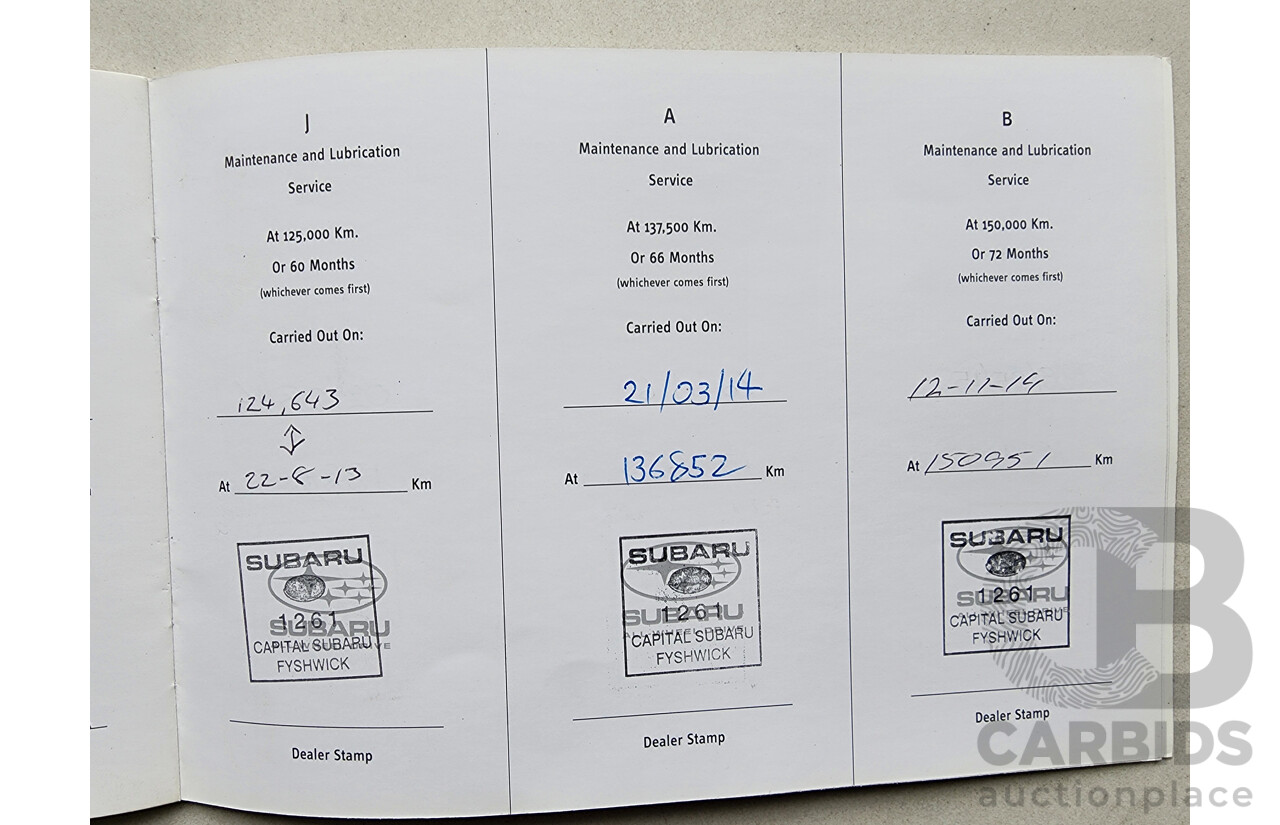 J
Maintenance and Lubrication
Service
At 125,000 Km.
Or 60 Months
(whichever comes first)
Carried Out On:
124,643
At 22-8-13 Km
SUBARU
1261
SUBARU
CAPITAL SUBARU
FYSHWICK
Dealer Stamp
A
Maintenance and Lubrication
Service
At 137,500 Km.
Or 66 Months
(whichever comes first)
Carried Out On:
21/03/14
At 136852 Km
SUBARU
1261
SUBARU
CAPITAL SUBARU
FYSHWICK
Dealer Stamp
B
Maintenance and Lubrication
Service
At 150,000 Km.
Or 72 Months
(whichever comes first)
Carried Out On:
12-11-14
At 150951 Km
SUBARU
1261
SUBARU
CAPITAL SUBARU
FYSHWICK
Dealer Stamp
CARBIDS
auctionplace